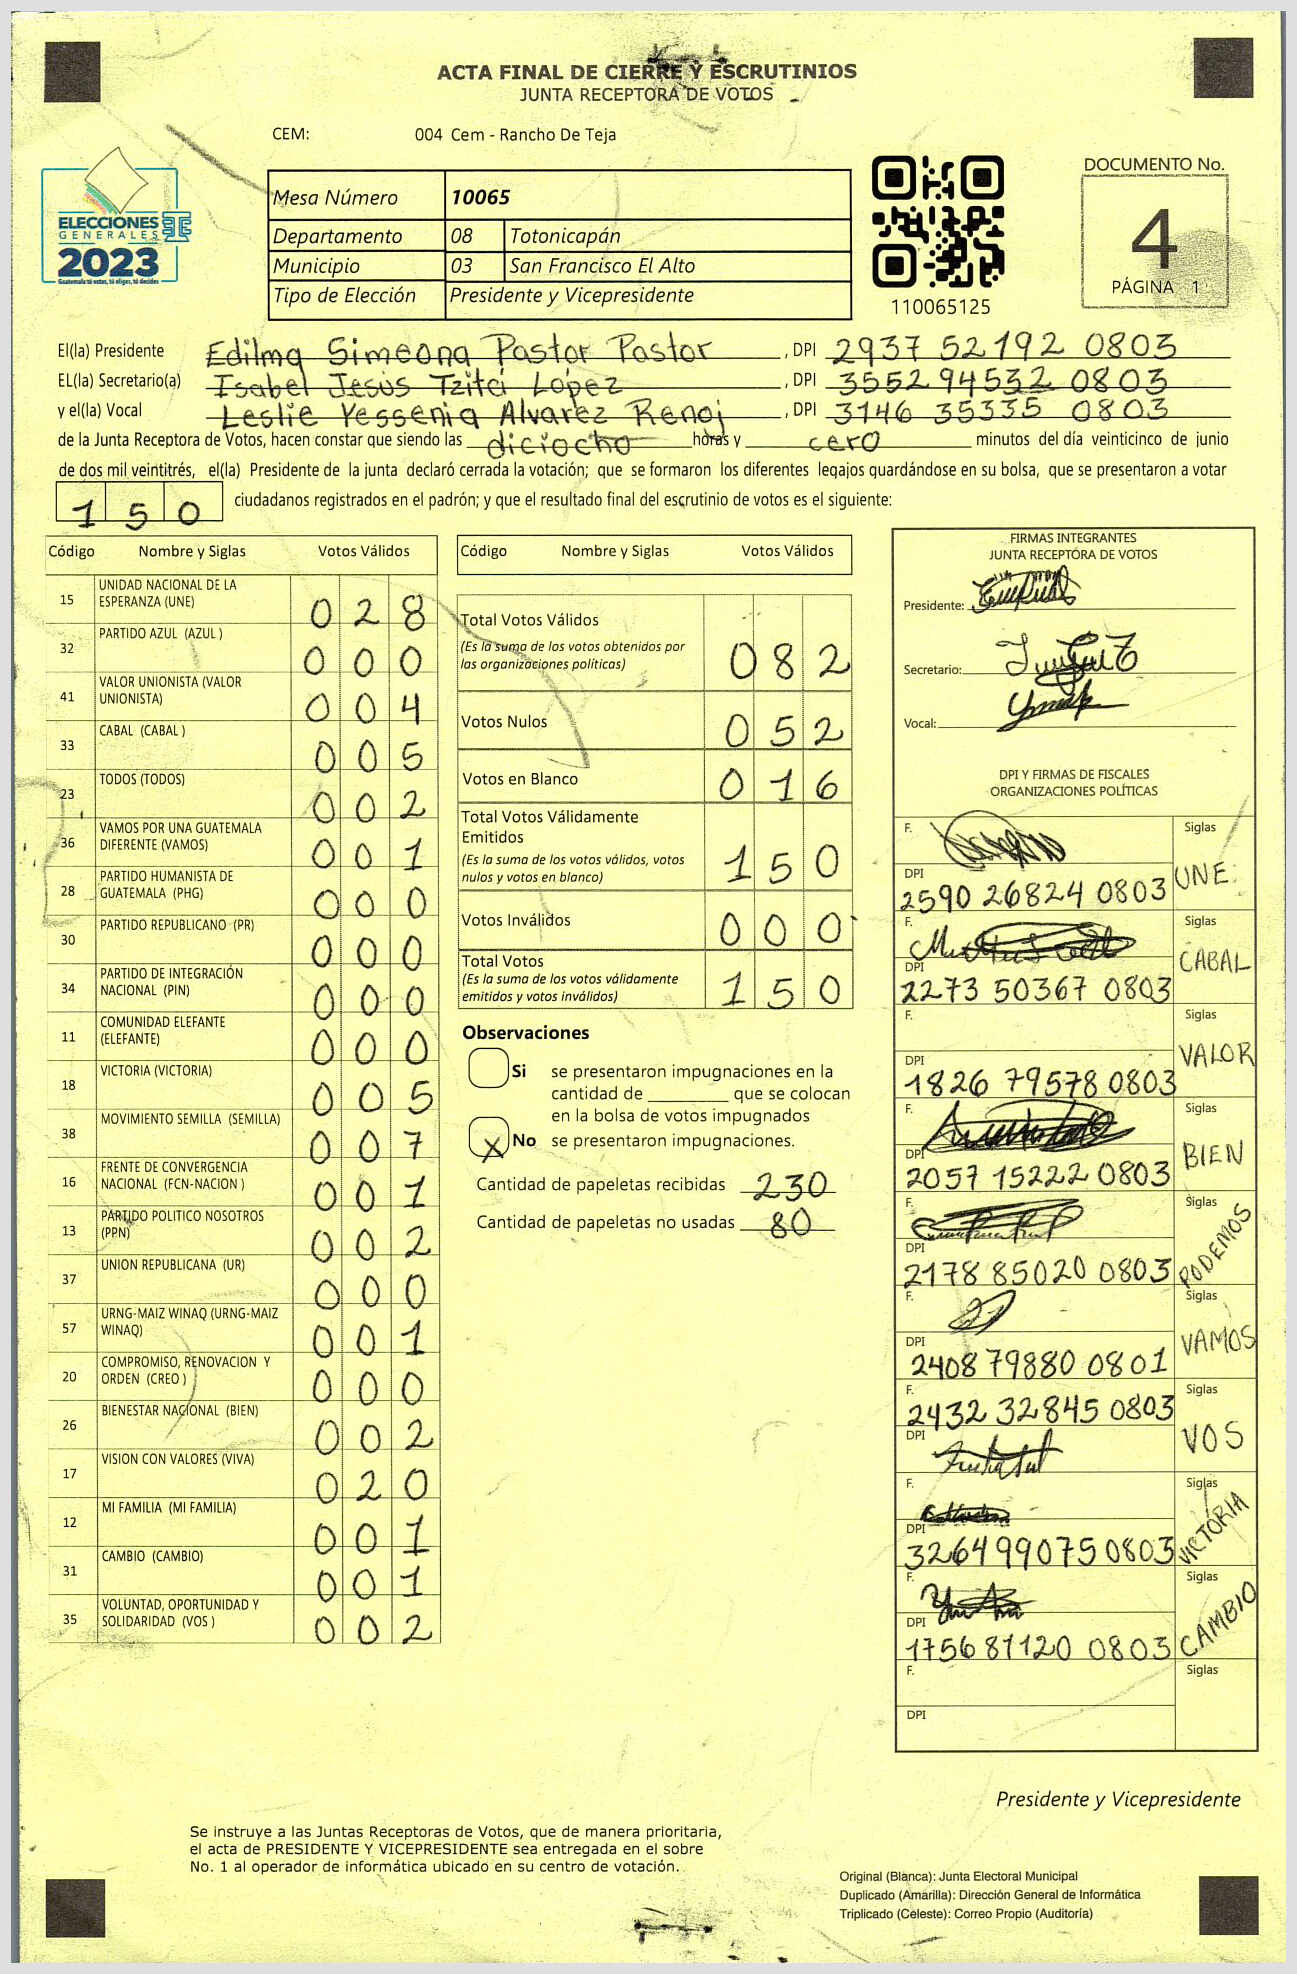 ACTA FINAL DE CIERRE Y ESCRUTINIOS
JUNTA RECEPTORA DE VOTOS
CEM: 004 Cem - Rancho De Teja
ELECCIONES
GENERALES
2023
Guatemala tú votas, tú eliges, tú decides
Mesa Número 10065
Departamento 08 Totonicapán
Municipio 03 San Francisco El Alto
Tipo de Elección Presidente y Vicepresidente
110065125
DOCUMENTO No.
4
PÁGINA 1
El(la) Presidente Edilma Simeona Pastor Pastor , DPI 2937 52192 0803
EL(la) Secretario(a) Isabel Jesús Tzitcí López , DPI 3552 94532 0803
y el(la) Vocal Leslie Yessenia Alvarez Renoj , DPI 3146 35335 0803
de la Junta Receptora de Votos, hacen constar que siendo las diciocho horas y cero minutos del día veinticinco de junio
de dos mil veintitrés, el(la) Presidente de la junta declaró cerrada la votación; que se formaron los diferentes legajos guardándose en su bolsa, que se presentaron a votar
150 ciudadanos registrados en el padrón; y que el resultado final del escrutinio de votos es el siguiente:
Código Nombre y Siglas Votos Válidos
15 UNIDAD NACIONAL DE LA ESPERANZA (UNE) 028
32 PARTIDO AZUL (AZUL ) 000
41 VALOR UNIONISTA (VALOR UNIONISTA) 004
33 CABAL (CABAL ) 005
23 TODOS (TODOS) 002
36 VAMOS POR UNA GUATEMALA DIFERENTE (VAMOS) 001
28 PARTIDO HUMANISTA DE GUATEMALA (PHG) 000
30 PARTIDO REPUBLICANO (PR) 000
34 PARTIDO DE INTEGRACIÓN NACIONAL (PIN) 000
11 COMUNIDAD ELEFANTE (ELEFANTE) 000
18 VICTORIA (VICTORIA) 005
38 MOVIMIENTO SEMILLA (SEMILLA) 007
16 FRENTE DE CONVERGENCIA NACIONAL (FCN-NACION ) 001
13 PARTIDO POLITICO NOSOTROS (PPN) 002
37 UNION REPUBLICANA (UR) 000
57 URNG-MAIZ WINAQ (URNG-MAIZ WINAQ) 001
20 COMPROMISO, RENOVACION Y ORDEN (CREO ) 000
26 BIENESTAR NACIONAL (BIEN) 002
17 VISION CON VALORES (VIVA) 020
12 MI FAMILIA (MI FAMILIA) 001
31 CAMBIO (CAMBIO) 001
35 VOLUNTAD, OPORTUNIDAD Y SOLIDARIDAD (VOS ) 002
Código Nombre y Siglas Votos Válidos
Total Votos Válidos 082
(Es la suma de los votos obtenidos por
las organizaciones políticas)
Votos Nulos 052
Votos en Blanco 016
Total Votos Válidamente
Emitidos 150
(Es la suma de los votos válidos, votos
nulos y votos en blanco)
Votos Inválidos 000
Total Votos 150
(Es la suma de los votos válidamente
emitidos y votos inválidos)
Observaciones
Si se presentaron impugnaciones en la
cantidad de ________ que se colocan
en la bolsa de votos impugnados
X No se presentaron impugnaciones.
Cantidad de papeletas recibidas 230
Cantidad de papeletas no usadas 80
FIRMAS INTEGRANTES
JUNTA RECEPTORA DE VOTOS
Presidente:
Secretario:
Vocal:
DPI Y FIRMAS DE FISCALES
ORGANIZACIONES POLÍTICAS
F. Siglas
DPI 2590 26824 0803 UNE
F. Siglas
DPI 2273 50367 0803 CABAL
F. Siglas
DPI 1826 79578 0803 VALOR
F. Siglas
DPI 2057 15222 0803 BIEN
F. Siglas
DPI 2178 85020 0803 PODEMOS
F. Siglas
DPI 2408 79880 0801 VAMOS
F. Siglas
2432 32845 0803 VOS
DPI
F. Siglas
DPI 3264 99075 0803 VICTORIA
F. Siglas
DPI 1756 81120 0803 CAMBIO
F. Siglas
DPI
Presidente y Vicepresidente
Se instruye a las Juntas Receptoras de Votos, que de manera prioritaria,
el acta de PRESIDENTE Y VICEPRESIDENTE sea entregada en el sobre
No. 1 al operador de informática ubicado en su centro de votación.
Original (Blanca): Junta Electoral Municipal
Duplicado (Amarilla): Dirección General de Informática
Triplicado (Celeste): Correo Propio (Auditoría)